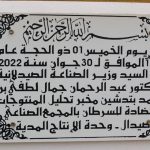 بسم الله الرحمن الرحيم
يوم الخميس 01 ذو الحجة عام
الموافق ل 30 جوان سنة 2022
السيد وزير الصناعة الصيدلانية
عبد الرحمان جمال لطفي بن
بتدشين مخبر تحليل المنتوجات
للسرطان بالمجمع الصناعي
صيدال - وحدة الإنتاج المدية